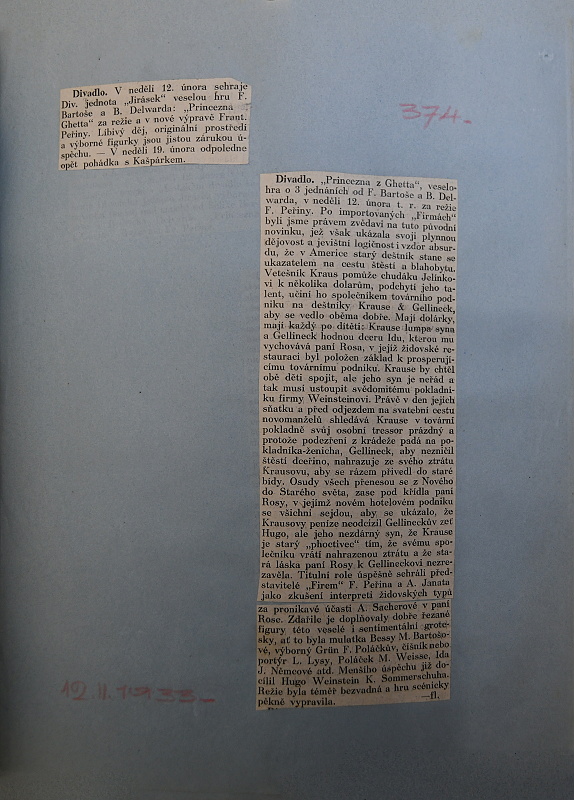 Divadlo. V neděli 12. února sehraje
Div. jednota „Jirásek" veselou hru F.
Bartoše a B. Delwarda: „Princezna z
Ghetta" za režie a v nové výpravě Frant.
Peřiny. Libivý děj, originální prostředí
a výborné figurky jsou jistou zárukou ú-
spěchu. — V neděli 19. února odpoledne
opět pohádka s Kašpárkem.
374.
Divadlo. „Princezna z Ghetta", veselo-
hra o 3 jednáních od F. Bartoše a B. Del-
warda, v neděli 12. února t. r. za režie
F. Peřiny. Po importovaných „Firmách"
byli jsme právem zvědavi na tuto původní
novinku, jež však ukázala svojí plynnou
dějovost a jevištní logičnost i vzdor absur-
du, že v Americe starý deštník stane se
ukazatelem na cestu štěstí a blahobytu.
Vetešník Kraus pomůže chudáku Jelínko-
vi k několika dolarům, podchytí jeho ta-
lent, učiní ho společníkem továrního pod-
niku na deštníky Krause & Gellineck,
aby se vedlo oběma dobře. Mají dolárky,
mají každý po dítěti: Krause lumpa syna
a Gellineck hodnou dceru Idu, kterou mu
vychovává paní Rosa, v jejíž židovské re-
stauraci byl položen základ k prosperují-
címu továrnímu podniku. Krause by chtěl
obě děti spojit, ale jeho syn je neřád a
tak musí ustoupit svědomitému pokladní-
ku firmy Weinsteinovi. Právě v den jejich
sňatku a před odjezdem na svatební cestu
novomanželů shledává Krause v tovární
pokladně svůj osobní tressor prázdný a
protože podezření z krádeže padá na po-
kladníka-ženicha, Gellineck, aby nezničil
štěstí dceřino, nahrazuje ze svého ztrátu
Krausovu, aby se rázem přivedl do staré
bídy. Osudy všech přenesou se z Nového
do Starého světa, zase pod křídla paní
Rosy, v jejímž novém hotelovém podniku
se všichni sejdou, aby se ukázalo, že
Krausovy peníze neodcizil Gellineckův zeť
Hugo, ale jeho nezdárný syn, že Krause
je starý „phoctivec" tím, že svému spo-
lečníku vrátí nahrazenou ztrátu a že sta-
rá láska paní Rosy k Gellineckovi nezre-
zavěla. Titulní role úspěšně sehráli před-
stavitelé „Firem" F. Peřina a A. Janata
jako zkušení interpreti židovských typů
za pronikavé účasti A. Sacherové v paní
Rose. Zdařile je doplňovaly dobře řezané
figury této veselé i sentimentální grotes-
ky, ať to byla mulatka Bessy M. Bartošo-
vé, výborný Grün F. Poláčkův, číšník nebo
portýr L. Lysy, Poláček M. Weisse, Ida
J. Němcové atd. Menšího úspěchu již do-
cílil Hugo Weinstein K. Sommerschuha.
Režie byla téměř bezvadná a hru scénicky
pěkně vypravila. —fl.
12. II. 1933.